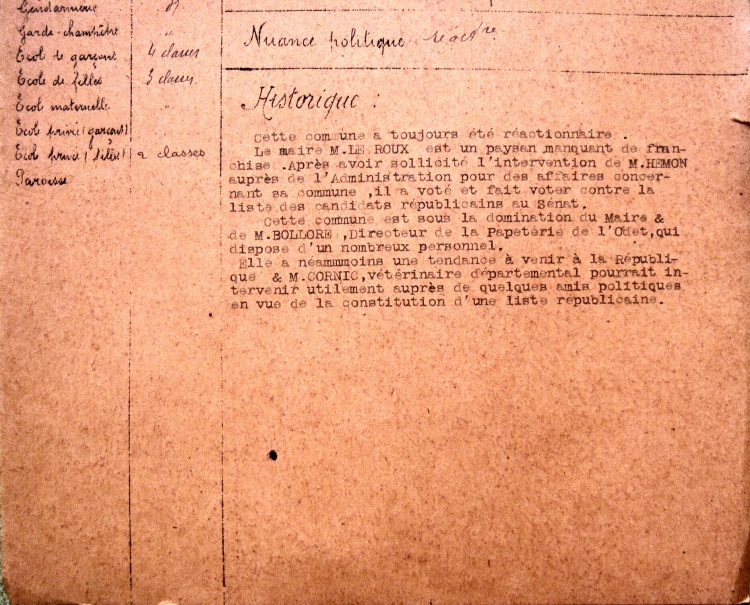 Gendarmerie
Garde-champêtre "
Ecol de garçons 4 classes
Ecole de filles 3 classes
Ecol maternelle "
Ecol privée (garçons) "
Ecol privée (filles) 2 classes
Paroisse
Nuance politique réactre
Historique :
Cette commune a toujours été réactionnaire .
Le maire M.LE ROUX est un paysan manquant de fran-
chise .Après avoir sollicité l'intervention de M.HEMON
auprès de l'Administration pour des affaires concer-
nant sa commune ,il a voté et fait voter contre la
liste des candidats républicains au Sénat.
Cette commune est sous la domination du Maire &
de M.BOLLORE ,Directeur de la Papeterie de l'Odet,qui
dispose d'un nombreux personnel.
Elle a néammmoins une tendance à venir à la Républi-
que & M.CORNIC,vétérinaire départemental pourrait in-
tervenir utilement auprès de quelques amis politiques
en vue de la constitution d'une liste républicaine.